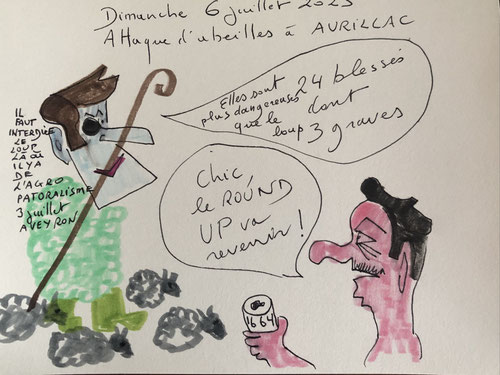 Dimanche 6 juillet 2025
Attaque d'abeilles à AURILLAC
Elles sont
plus dangereuses
que le
loup
24 blessés
dont
3 graves
IL
FAUT
INTERDIRE
LE
LOUP
LÀ OÙ
IL Y A
DE
L'AGRO
PATORALISME
3 juillet
AVEYRON
Chic,
le ROUND
UP va
revenir !
1664